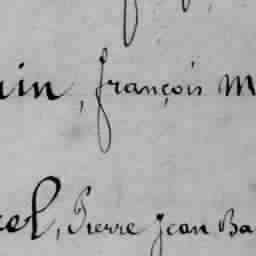 in, françois M
el, Pierre Jean Ba